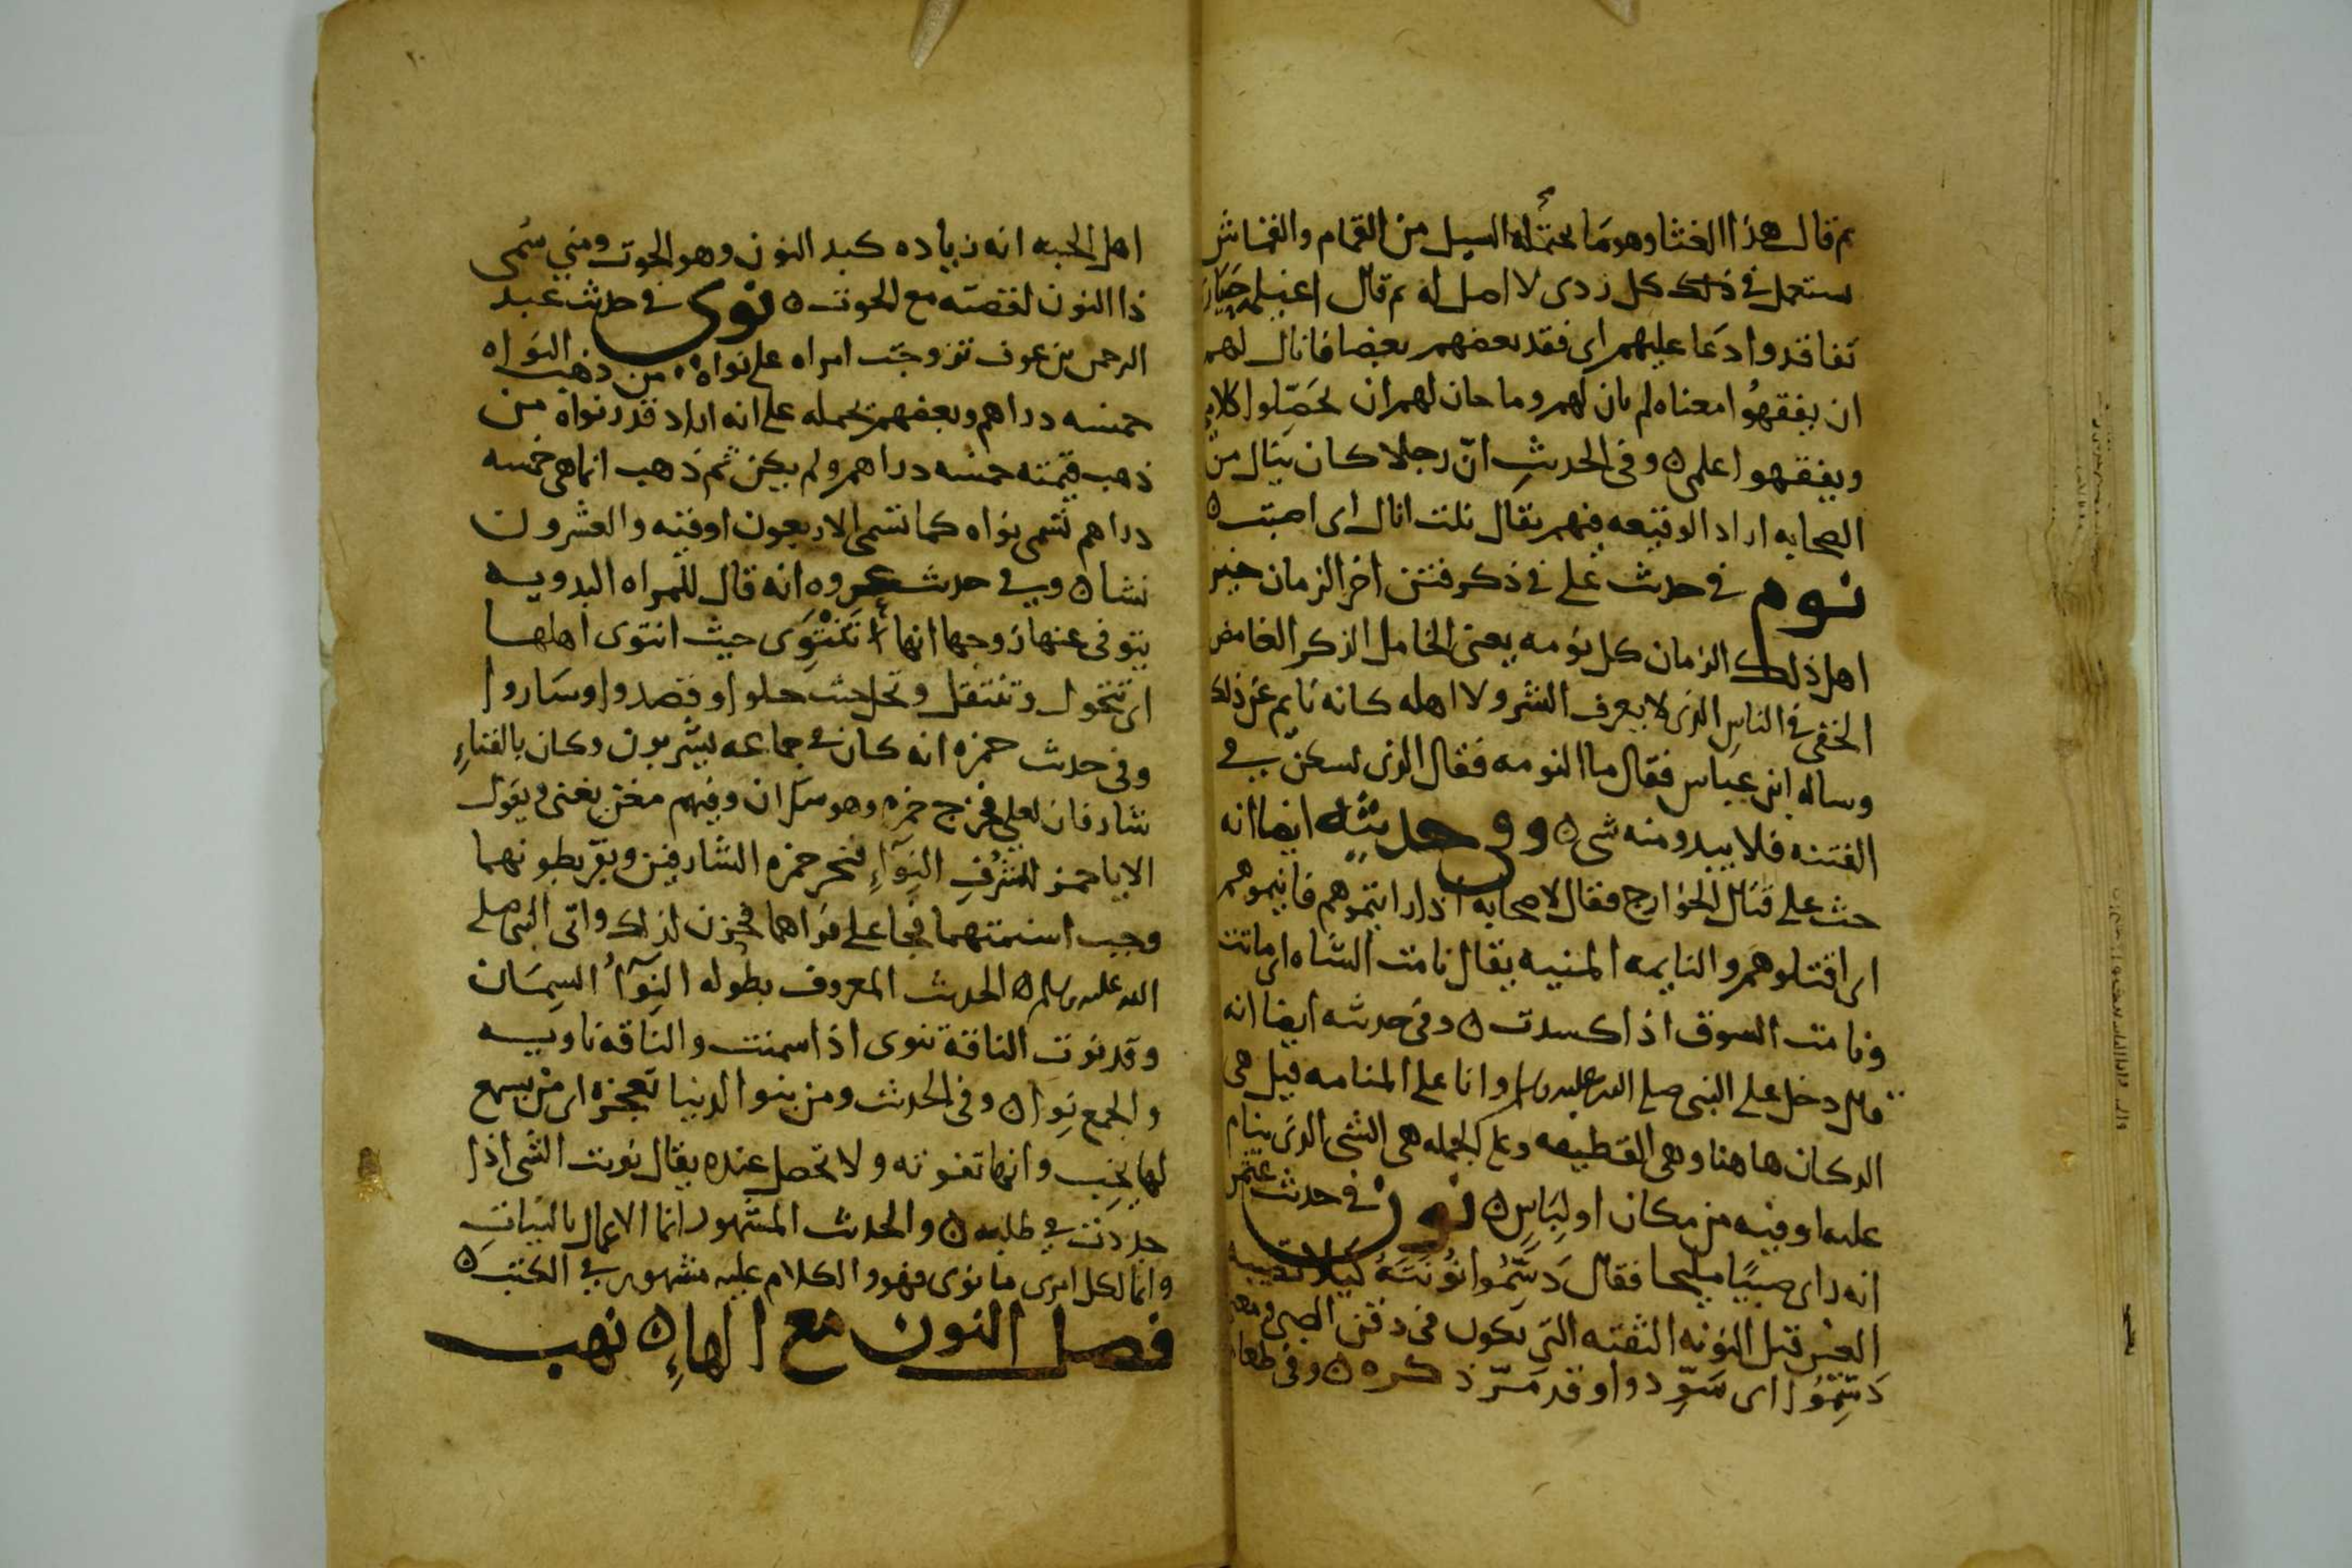 ثم قال هذا الغثا وهو ما يحتمله السيل من القمام والقماش
يستعمل في ذلك كل ردى لا اصل له ثم قال اغيلمه حيارى
تفاقدوا دعا عليهم اى فقد بعضهم بعضا فانال لهم
ان يفقهوا معناه لم يان لهم وما حان لهم ان يحصلوا كلامي
ويفقهوا علمى ٥ وفى الحديث ان رجلا كان ينال من
الصحابه اراد الوقيعه فيهم يقال نلت انال اى اصبت ٥
نوم في حديث على في ذكر فتن اخر الزمان خير
اهل ذلك الزمان كل نومه يعنى الخامل الذكر الغامض
الخفى في الناس الذى لا يعرف الشر ولا اهله كانه نايم عن ذلك
وساله ابن عباس فقال ما النومه فقال الذى يسكن في
الفتنه فلا يبدو منه شى ٥ وفي حديثه ايضا انه
حث على قتال الخوارج فقال لاصحابه اذا رايتموهم فانيموهم
اى اقتلوهم والنايمه المنيه يقال نامت الشاه اى ماتت
ونامت السوق اذا كسدت ٥ وفى حديثه ايضا انه
قال دخل على النبى صلى الله عليه وسلم وانا على المنامه قيل هى
الدكان هاهنا وهى القطيفه وعلى الجمله هى الشى الذى ينام
عليه او فيه من مكان او لباس ٥ نون في حديث عثمن
انه راى صبيا مليحا فقال دسموا نونته كيلا تصيبه
العين قيل النونه الثقبه التى تكون فى ذقن الصبى ومعنى
دسموا اى سودوا وقد مر ذكره ٥ وفى طعام
اهل الجنه انه زياده كبد النون وهو الحوت ومنه سمى
ذا النون لقصته مع الحوت ٥ نوى في حديث عبد
الرحمن بن عوف تزوجت امراه على نواه من ذهب النواه
خمسه دراهم وبعضهم يحمله على انه اراد قدر نواة من
ذهب قيمته خمسه دراهم ولم يكن ثم ذهب انما هى خمسه
دراهم تسمى نواه كما تسمى الاربعون اوقيه والعشرون
نشا ٥ وفي حديث عروه انه قال للمراه البدويه
يتوفى عنها زوجها انها تنتوى حيث انتوى اهلها
اى تتحول وتنتقل وتحل حيث حلوا وقصدوا وساروا
وفى حديث حمزه انه كان في جماعه يشربون وكان بالفناء
شارفان لعلى فخرج حمزه وهو سكران وفيهم مغن يغنى ويقول
الا يا حمز للشرف النواء فنحر حمزه الشارفين وبقر بطونهما
وجب اسنمتهما فجا على فراهما فحزن لذلك واتى النبى صلى
الله عليه وسلم ٥ الحديث المعروف بطوله النواء السمان
وقد نوت الناقة تنوى اذا سمنت والناقه ناويه
والجمع نوا ٥ وفى الحديث ومن ينو الدنيا تعجزه اى من يسع
لها يخب وانها تفوته ولا تحصل عنده يقال نويت الشى اذا
جددت في طلبه ٥ والحديث المشهور انما الاعمال بالنيات
وانما لكل امرى ما نوى فهو والكلام عليه مشهور في الكتب ٥
فصل النون مع الهاء ٥ نهب